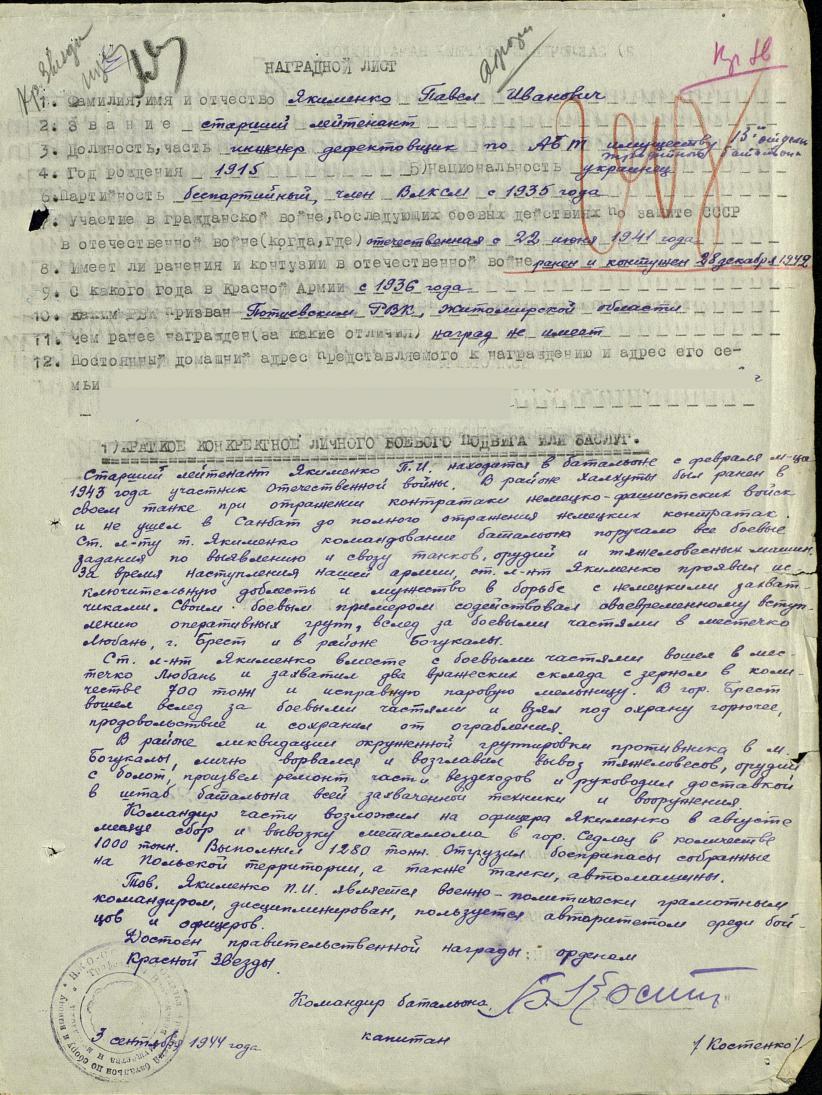 Кр. Звезды
Кр Зв
НАГРАДНОЙ ЛИСТ
1. Фамилия,имя и отчество Якименко Павел Иванович
2. Звание старший лейтенант
3. Должность,часть инженер дефектовщик по АБТ имуществу 15 отдельн трофейный батальон
4. Год рождения 1915 5)Национальность украинец
6.Партийность беспартийный, член ВЛКСМ с 1935 года
7. Участие в гражданской войне,последующих боевых действиях по защите СССР
в отечественной войне(когда,где) отечественная с 22 июня 1941 года
8. Имеет ли ранения и контузии в отечественной войне ранен и контужен 28 декабря 1942
9. С какого года в Красной Армии с 1936 года
10. каким РВК призван Потиевским РВК, Житомирской области
11. чем ранее награжден(за какие отличия) наград не имеет
12. Постоянный домашний адрес представляемого к награждению и адрес его се-
мьи
1)КРАТКОЕ КОНКРЕТНОЕ ЛИЧНОГО БОЕВОГО ПОДВИГА ИЛИ ЗАСЛУГ.
Старший лейтенант Якименко П.И. находится в батальоне с февраля м-ца
1943 года участник Отечественной войны. В районе Халхуты был ранен в
своем танке при отражении контратаки немецко-фашистских войск
и не ушел в Санбат до полного отражения немецких контратак.
Ст. л-ту т. Якименко командование батальона поручало все боевые
задания по выявлению и своду танков, орудий и тяжеловесных машин.
За время наступления нашей армии, ст. л-нт Якименко проявил ис-
ключительную доблесть и мужество в борьбе с немецкими захват-
чиками. Своим боевым примером содействовал своевременному вступ-
лению оперативных групп, вслед за боевыми частями в местечко
Любань, г. Брест и в районе Богукалы.
Ст. л-нт Якименко вместе с боевыми частями вошел в мес-
течко Любань и захватил два вражеских склада с зерном в коли-
честве 700 тонн и исправную паровую мельницу. В гор. Брест
вошел вслед за боевыми частями и взял под охрану горючее,
продовольствие и сохранил от ограбления.
В районе ликвидации окруженной группировки противника в м.
Богукалы, лично ворвался и возглавил вывоз тяжеловесов, орудий
с болот, произвел ремонт части вездеходов и руководил доставкой
в штаб батальона всей захваченной техники и вооружения.
Командир части возложил на офицера Якименко в августе
месяце сбор и вывозку металлома в гор. Седлец в количестве
1000 тонн. Выполнил 1280 тонн. Отгрузил боеприпасы собранные
на Польской территории, а также танки, автомашины.
Тов. Якименко П.И. является военно-политически грамотным
командиром, дисциплинирован, пользуется авторитетом среди бой-
цов и офицеров.
Достоен правительственной награды: орденом
Красной Звезды.
Командир батальона
капитан
/ Костенко /
3 сентября 1944 года